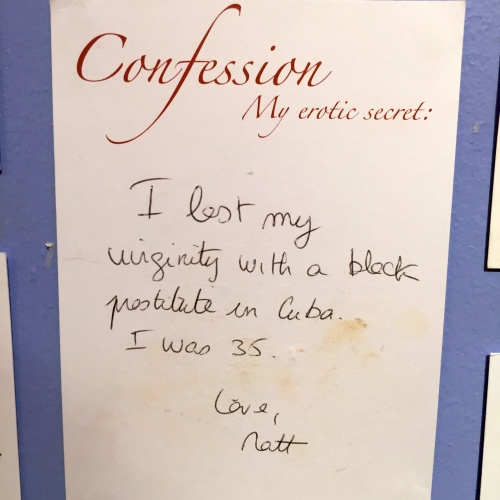 Confession
My erotic secret:
I lost my
virginity with a black
prostitute in Cuba.
I was 35.
Love,
Matt